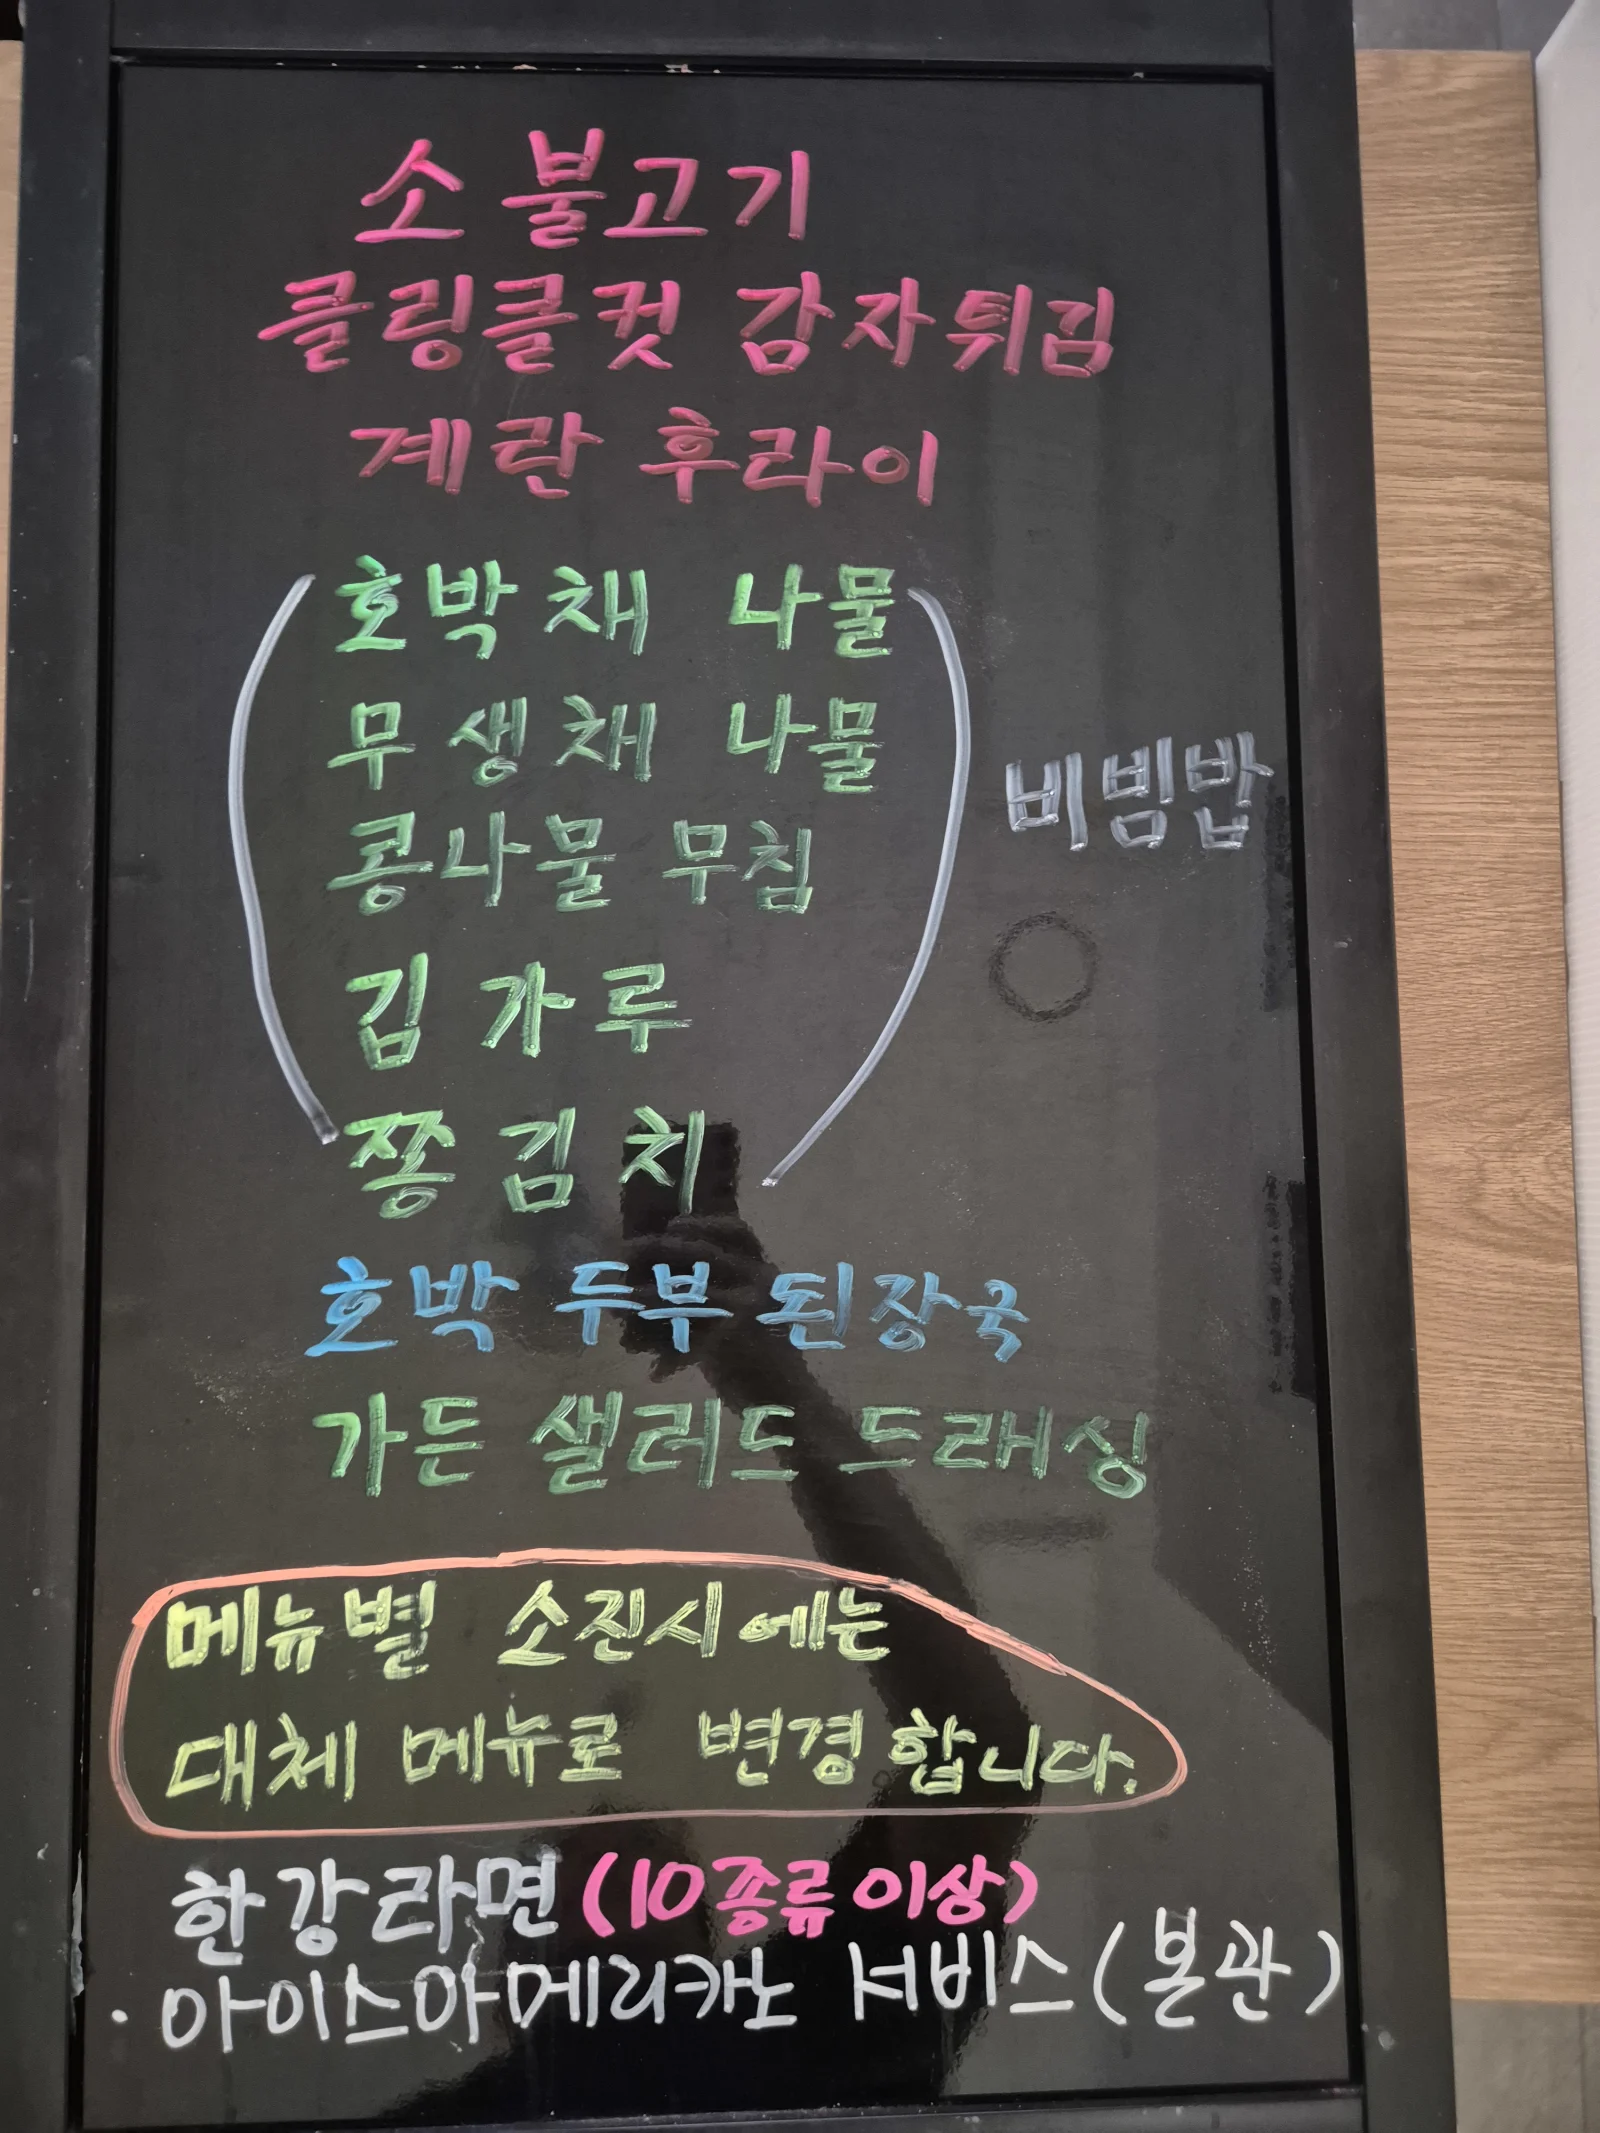 소 불고기
클링클컷 감자튀김
계란 후라이
(호박채 나물
무생채 나물
콩나물 무침
김가루
쫑김치) 비빔밥
호박 두부 된장국
가든 샐러드 드래싱
메뉴별 소진시에는
대체 메뉴로 변경합니다.
한강라면 (10종류이상)
·아이스아메리카노 서비스(본관)